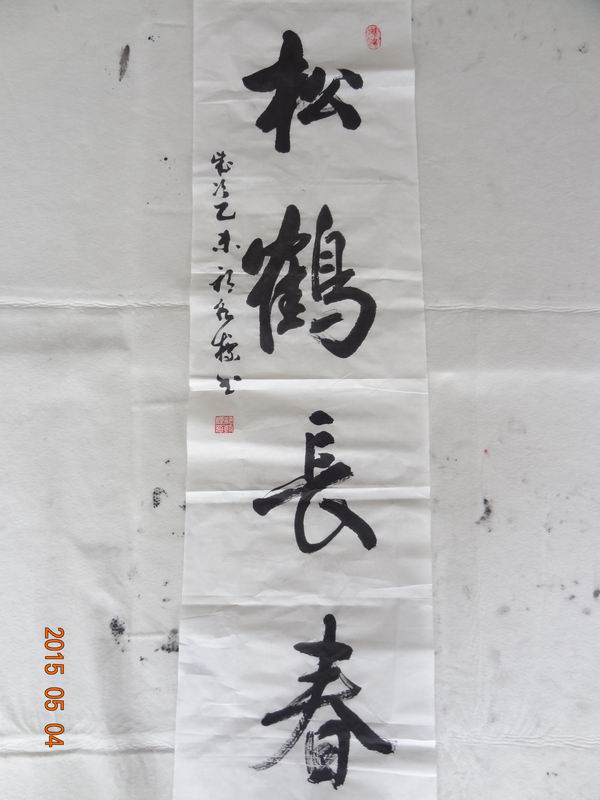 松鶴長春
歲次乙未 书
2015 05 04